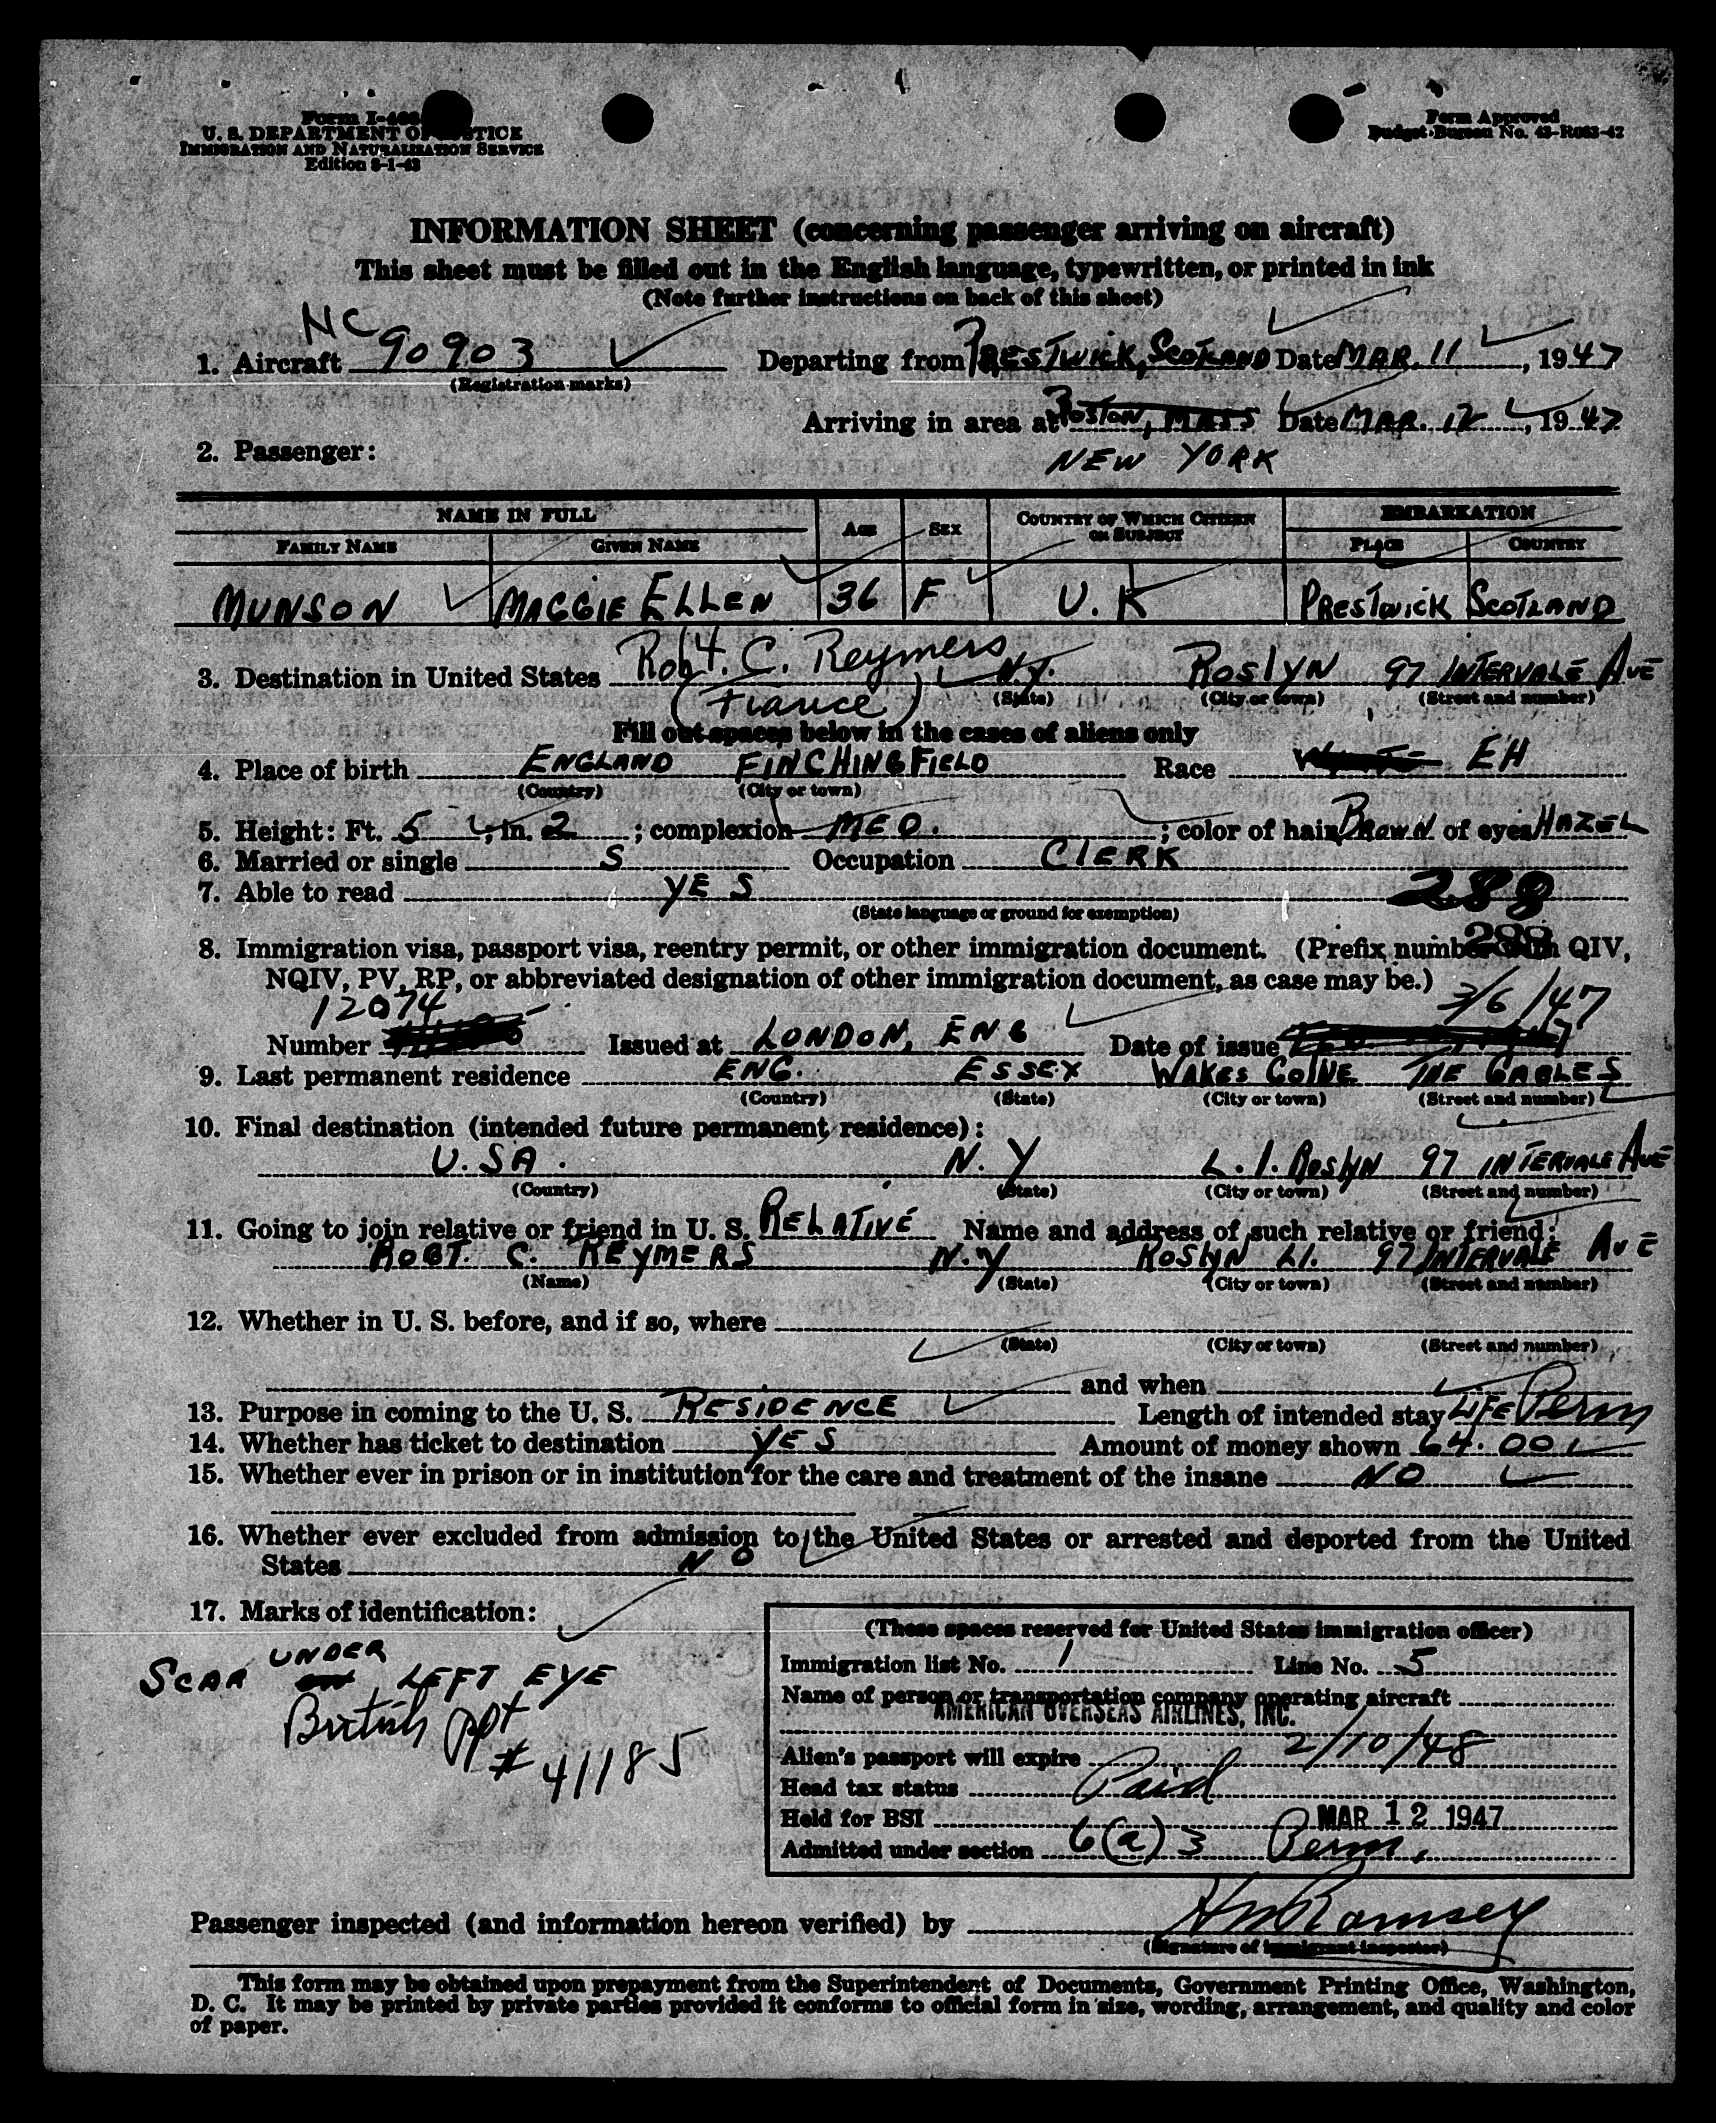 Form I-466
U. S. DEPARTMENT OF JUSTICE
IMMIGRATION AND NATURALIZATION SERVICE
Edition 8-1-42
Form Approved
Budget Bureau No. 43-R063-42
INFORMATION SHEET (concerning passenger arriving on aircraft)
This sheet must be filled out in the English language, typewritten, or printed in ink
(Note further instructions on back of this sheet)
1. Aircraft NC 90903 Departing from PRESTWICK, SCOTLAND Date MAR. 11, 1947
(Registration marks)
Arriving in area at BOSTON, MASS Date MAR. 12, 1947
NEW YORK
2. Passenger:
NAME IN FULL AGE SEX COUNTRY OF WHICH CITIZEN OR SUBJECT EMBARKATION
FAMILY NAME GIVEN NAME PLACE COUNTRY
MUNSON MAGGIE ELLEN 36 F U. K PRESTWICK SCOTLAND
3. Destination in United States Robt. C. Reymers N.Y. ROSLYN 97 INTERVALE AVE
(Fiance) (State) (City or town) (Street and number)
Fill out spaces below in the cases of aliens only
4. Place of birth ENGLAND FINCHINGFIELD Race WHITE EH
(Country) (City or town)
5. Height: Ft. 5; in. 2; complexion MED.; color of hair BROWN of eyes HAZEL
6. Married or single S Occupation CLERK
7. Able to read YES 288
(State language or ground for exemption)
288
8. Immigration visa, passport visa, reentry permit, or other immigration document. (Prefix number with QIV,
NQIV, PV, RP, or abbreviated designation of other immigration document, as case may be.)
12074 3/6/47
Number Issued at LONDON, ENG Date of issue
9. Last permanent residence ENG. ESSEX WAKES COLNE THE GABLES
(Country) (State) (City or town) (Street and number)
10. Final destination (intended future permanent residence):
U. SA. N. Y L. I. ROSLYN 97 INTERVALE AVE
(Country) (State) (City or town) (Street and number)
11. Going to join relative or friend in U. S. RELATIVE Name and address of such relative or friend:
ROBT. C. REYMERS N.Y ROSLYN LI. 97 INTERVALE AVE
(Name) (State) (City or town) (Street and number)
12. Whether in U. S. before, and if so, where
(State) (City or town) (Street and number)
and when
13. Purpose in coming to the U. S. RESIDENCE Length of intended stay LIFE Perm
14. Whether has ticket to destination YES Amount of money shown 64.00
15. Whether ever in prison or in institution for the care and treatment of the insane NO
16. Whether ever excluded from admission to the United States or arrested and deported from the United
States NO
17. Marks of identification:
SCAR UNDER LEFT EYE
British ppt
# 41185
(These spaces reserved for United States immigration officer)
Immigration list No. 1 Line No. 5
Name of person or transportation company operating aircraft
AMERICAN OVERSEAS AIRLINES, INC.
Alien's passport will expire 2/10/48
Head tax status Paid
Held for BSI MAR 12 1947
Admitted under section 6(a)3 Perm.
Passenger inspected (and information hereon verified) by HM Ramsey
(Signature of immigrant inspector)
This form may be obtained upon prepayment from the Superintendent of Documents, Government Printing Office, Washington,
D. C. It may be printed by private parties provided it conforms to official form in size, wording, arrangement, and quality and color
of paper.